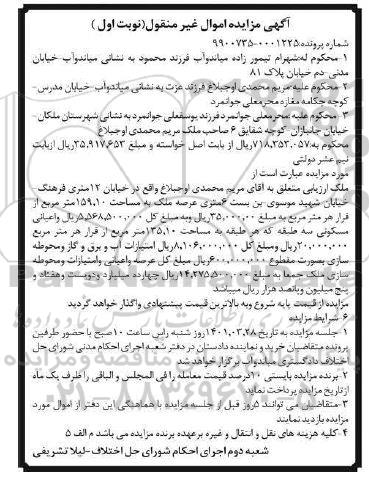 آگهی مزایده اموال غیر منقول(نوبت اول )
شماره پرونده:۰۰۰۱۲۲۵-۹۹۰۰۷۳۵
۱-محکوم له:شهرام تیمور زاده میاندوآب فرزند محمود به نشانی میاندوآب خیابان
مدنی دم خیابان پلاک ۸۱
۲-محکوم علیه مریم محمدی اوجبلاغ فرزند عزت به نشانی میاندوآب خیابان مدرس-
کوچه حکامه مغازه محرمعلی جوانمرد
۳-محکوم علیه محرمعلی جوانمرد فرزند یوسفعلی جوانمرد به نشانی شهرستان ملکان-
خیابان جانبازان کوچه شقایق ۶ صاحب ملک مریم محمدی اوجبلاغ
محکوم به:۷۱۸,۳۵۳,۰۵۷ریال از بابت اصل خواسته و مبلغ ۳۵,۹۱۷,۶۵۳ریال ازبابت
نیم عشر دولتی
مورد مزایده عبارت است از
ملک ارزیابی متعلق به آقای مریم محمدی اوجبلاغ واقع در خیابان ۱۲متری فرهنگ-
خیابان شهید موسوی -بن بست ۶متری عرصه ملک به مساحت ۱۵۹,۱۰متر مربع از
قرار هر متر مربع به مبلغ ۳۵,۰۰۰,۰۰۰ریال وبه مبلغ کل ۵,۵۶۸,۵۰۰,۰۰۰ریال واعیانی
مسکونی سه طبقه که هر طبقه به مساحت ۱۳۵,۱۰متر مربع از قرار هر متر مربع
۲۰,۰۰۰,۰۰۰ریال ومبلغ کل ۸,۱۰۶,۰۰۰,۰۰۰ریال امتیازات آب و برق و گاز ومحوطه
سازی بصورت مقطوع ۶۰۰,۰۰۰,۰۰۰ریال ومبلغ کل عرصه واعیانی وامتیازات ومحوطه
سازی ملک جمعا به مبلغ ۱۴,۲۷۵,۵۰۰,۰۰۰ریال چهارده میلیارد ودویست وهفتاد و
پنج میلیون وپانصد هزار ریال میباشد
مزایده از قیمت پایه شروع وبه بالاترین قیمت پیشنهادی واگذار خواهد گردید
۶ شرایط مزایده
۱- جلسه مزایده به تاریخ ۱۴۰۱,۰۳,۲۸روز شنبه راس ساعت ۱۰صبح با حضور طرفین
پرونده متقاضیان خرید و نماینده دادستان در دفتر شعبه اجرای احکام مدنی شورای حل
اختلاف دادگستری میاندواب برگزار خواهد شد
۲-برنده مزایده بایستی ۱۰درصد قیمت معامله را فی المجلس و الباقی را ظرف یک ماه
از تاریخ مزایده پرداخت نماید
۳-متقاضیان می توانند ۵روز قبل از جلسه مزایده با هماهنگی این دفتر از اموال مورد
مزایده بازدید نمایند
۴-کلیه هزینه های نقل و انتقال و غیره برعهده برنده مزایده می باشد م الف ۵
شعبه دوم اجرای احکام شورای حل اختلاف-لیلا تشریفی